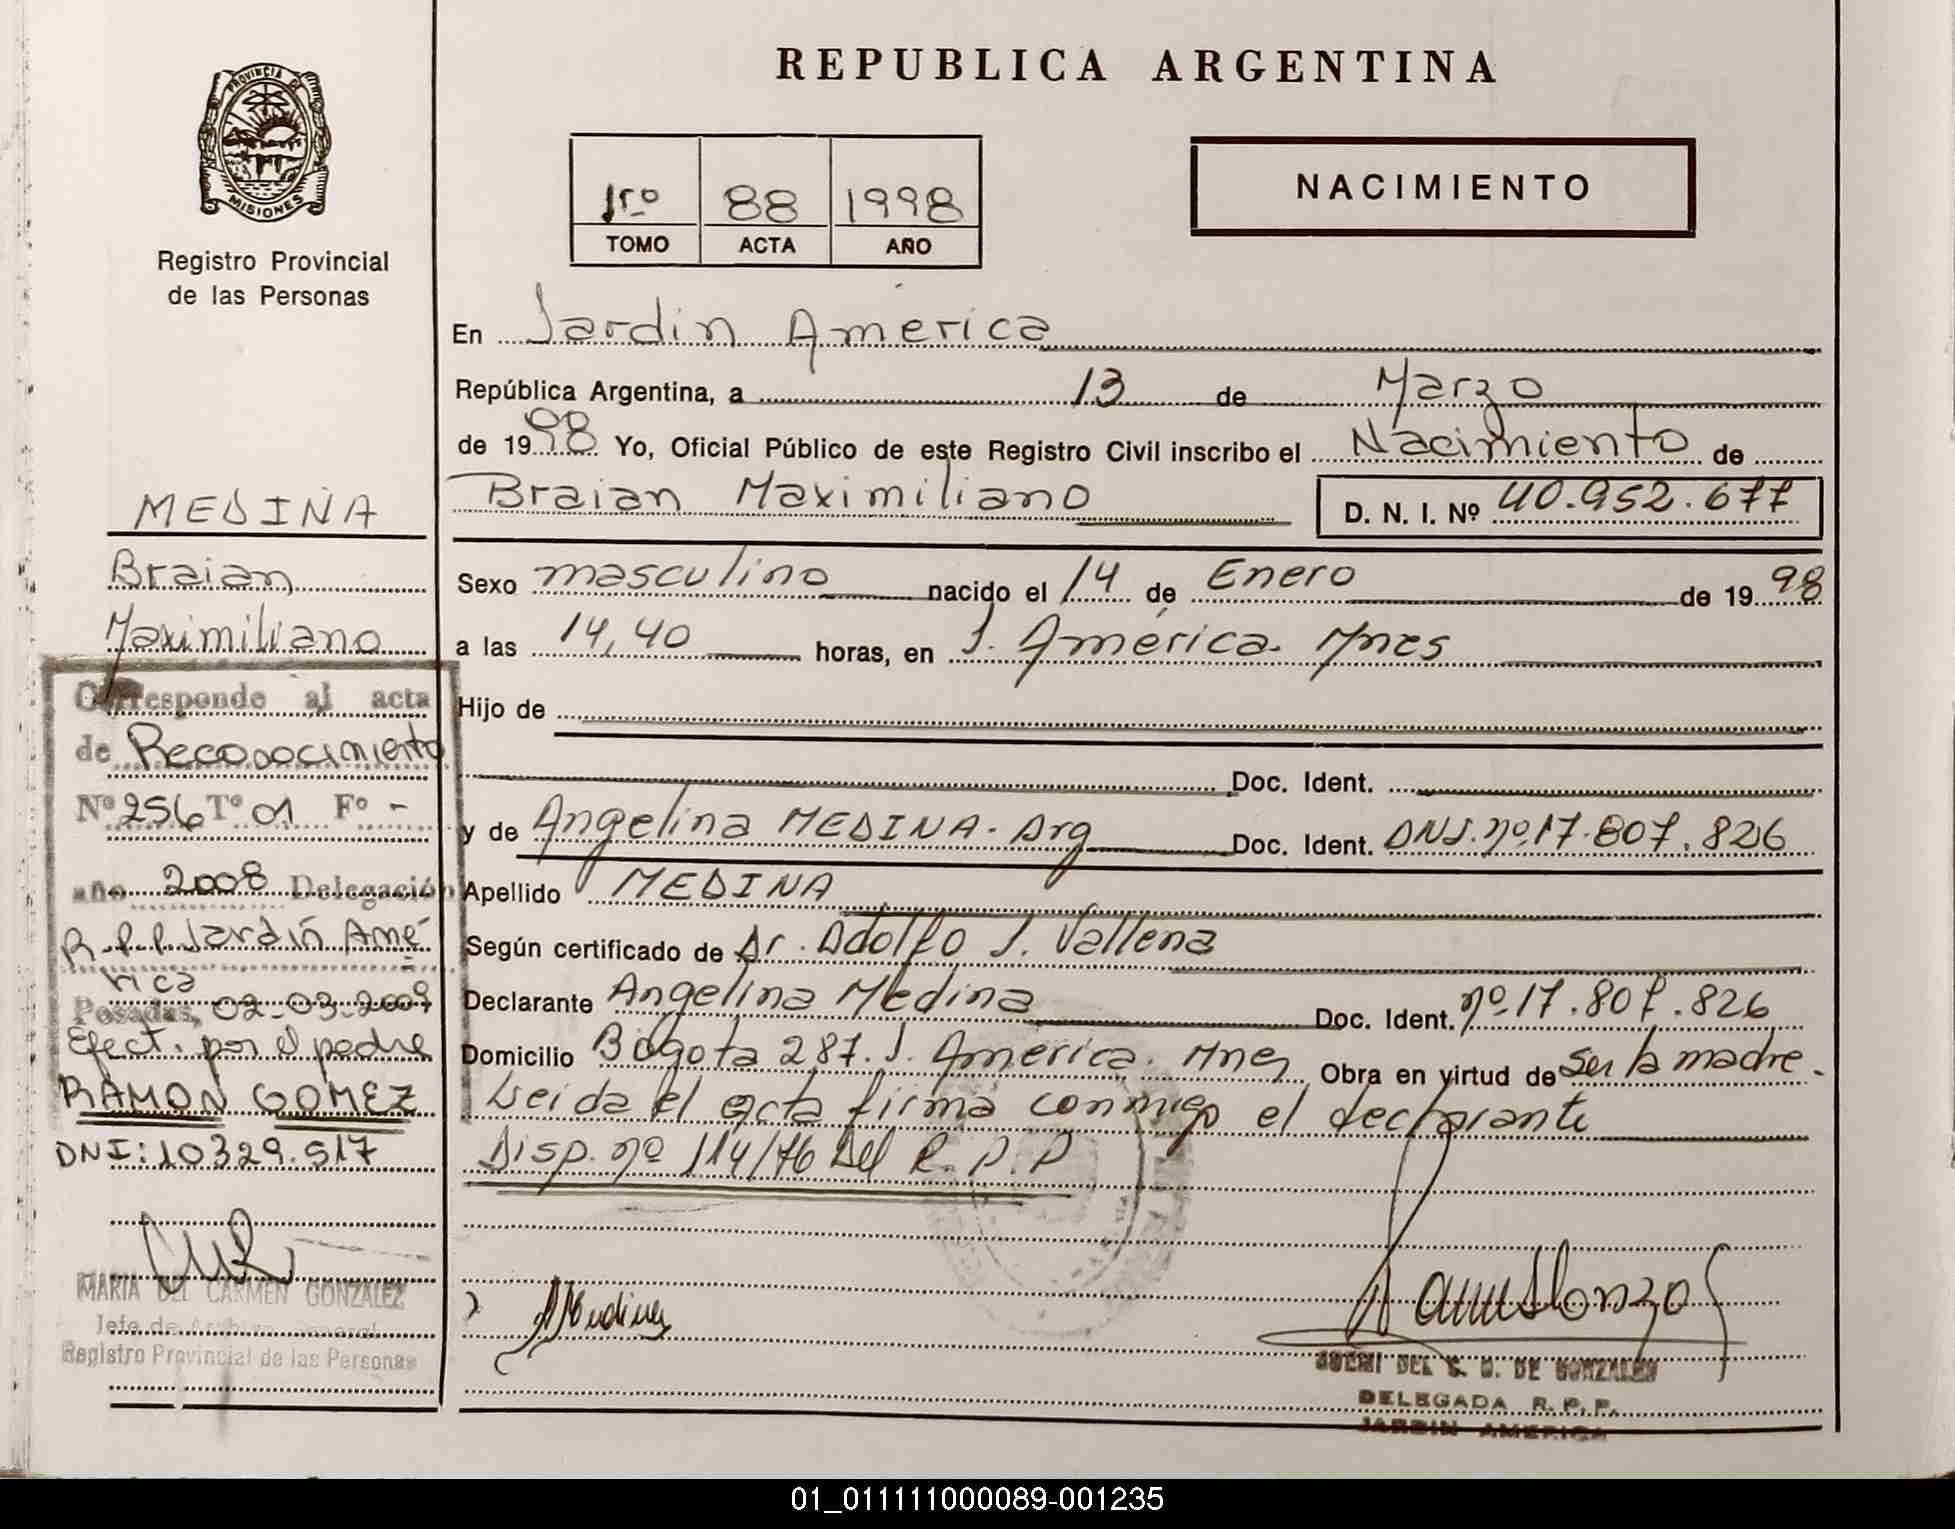 REPUBLICA ARGENTINA
PROVINCIA DE
MISIONES
Registro Provincial
de las Personas
1ro 88 1998
TOMO ACTA AÑO
NACIMIENTO
En Jardin América
República Argentina, a 13 de Marzo
de 1998 Yo, Oficial Público de este Registro Civil inscribo el Nacimiento de
Braian Maximiliano D. N. I. Nº 40.952.677
Sexo masculino nacido el 14 de Enero de 1998
a las 14,40 horas, en J. América. Mnes
Hijo de
Doc. Ident.
y de Angelina MEDINA. Arg Doc. Ident. DNI. nº 17.807.826
Apellido MEDINA
Según certificado de Dr. Adolfo J. Vallena
Declarante Angelina Medina Doc. Ident. nº 17.807.826
Domicilio Bogota 287. J. América. Mnes Obra en virtud de ser la madre.
Leida el acta firma conmigo el declarante
Disp. nº 114/76 del R. P. P
MEDINA
Braian
Maximiliano
Corresponde al acta
de Reconocimiento
Nº 256 Tº 01 Fº -
año 2008 Delegación
R.P.P Jardín Amé
rica
Posadas, 02-03-2009
Efect. por el padre
RAMON GOMEZ
DNI: 10329.517
MARIA DEL CARMEN GONZALEZ
Jefe de Archivo General
Registro Provincial de las Personas
AMedina
DE GONZALEZ
DELEGADA R. P. P.
JARDIN AMERICA
01_011111000089-001235